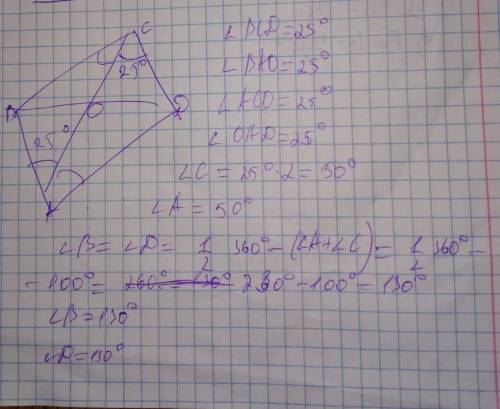 C
25°
B
O
D
25°
A
∠BCD=25°
∠BAO=25°
∠ACO=25°
∠OAD=25°
∠C = 25°·2 = 50°
∠A = 50°
∠B = ∠D = 1/2 360° - (∠A+∠C) = 1/2 360° -
- 100° = 230° - 100° = 130°
∠B = 130°
∠D = 130°